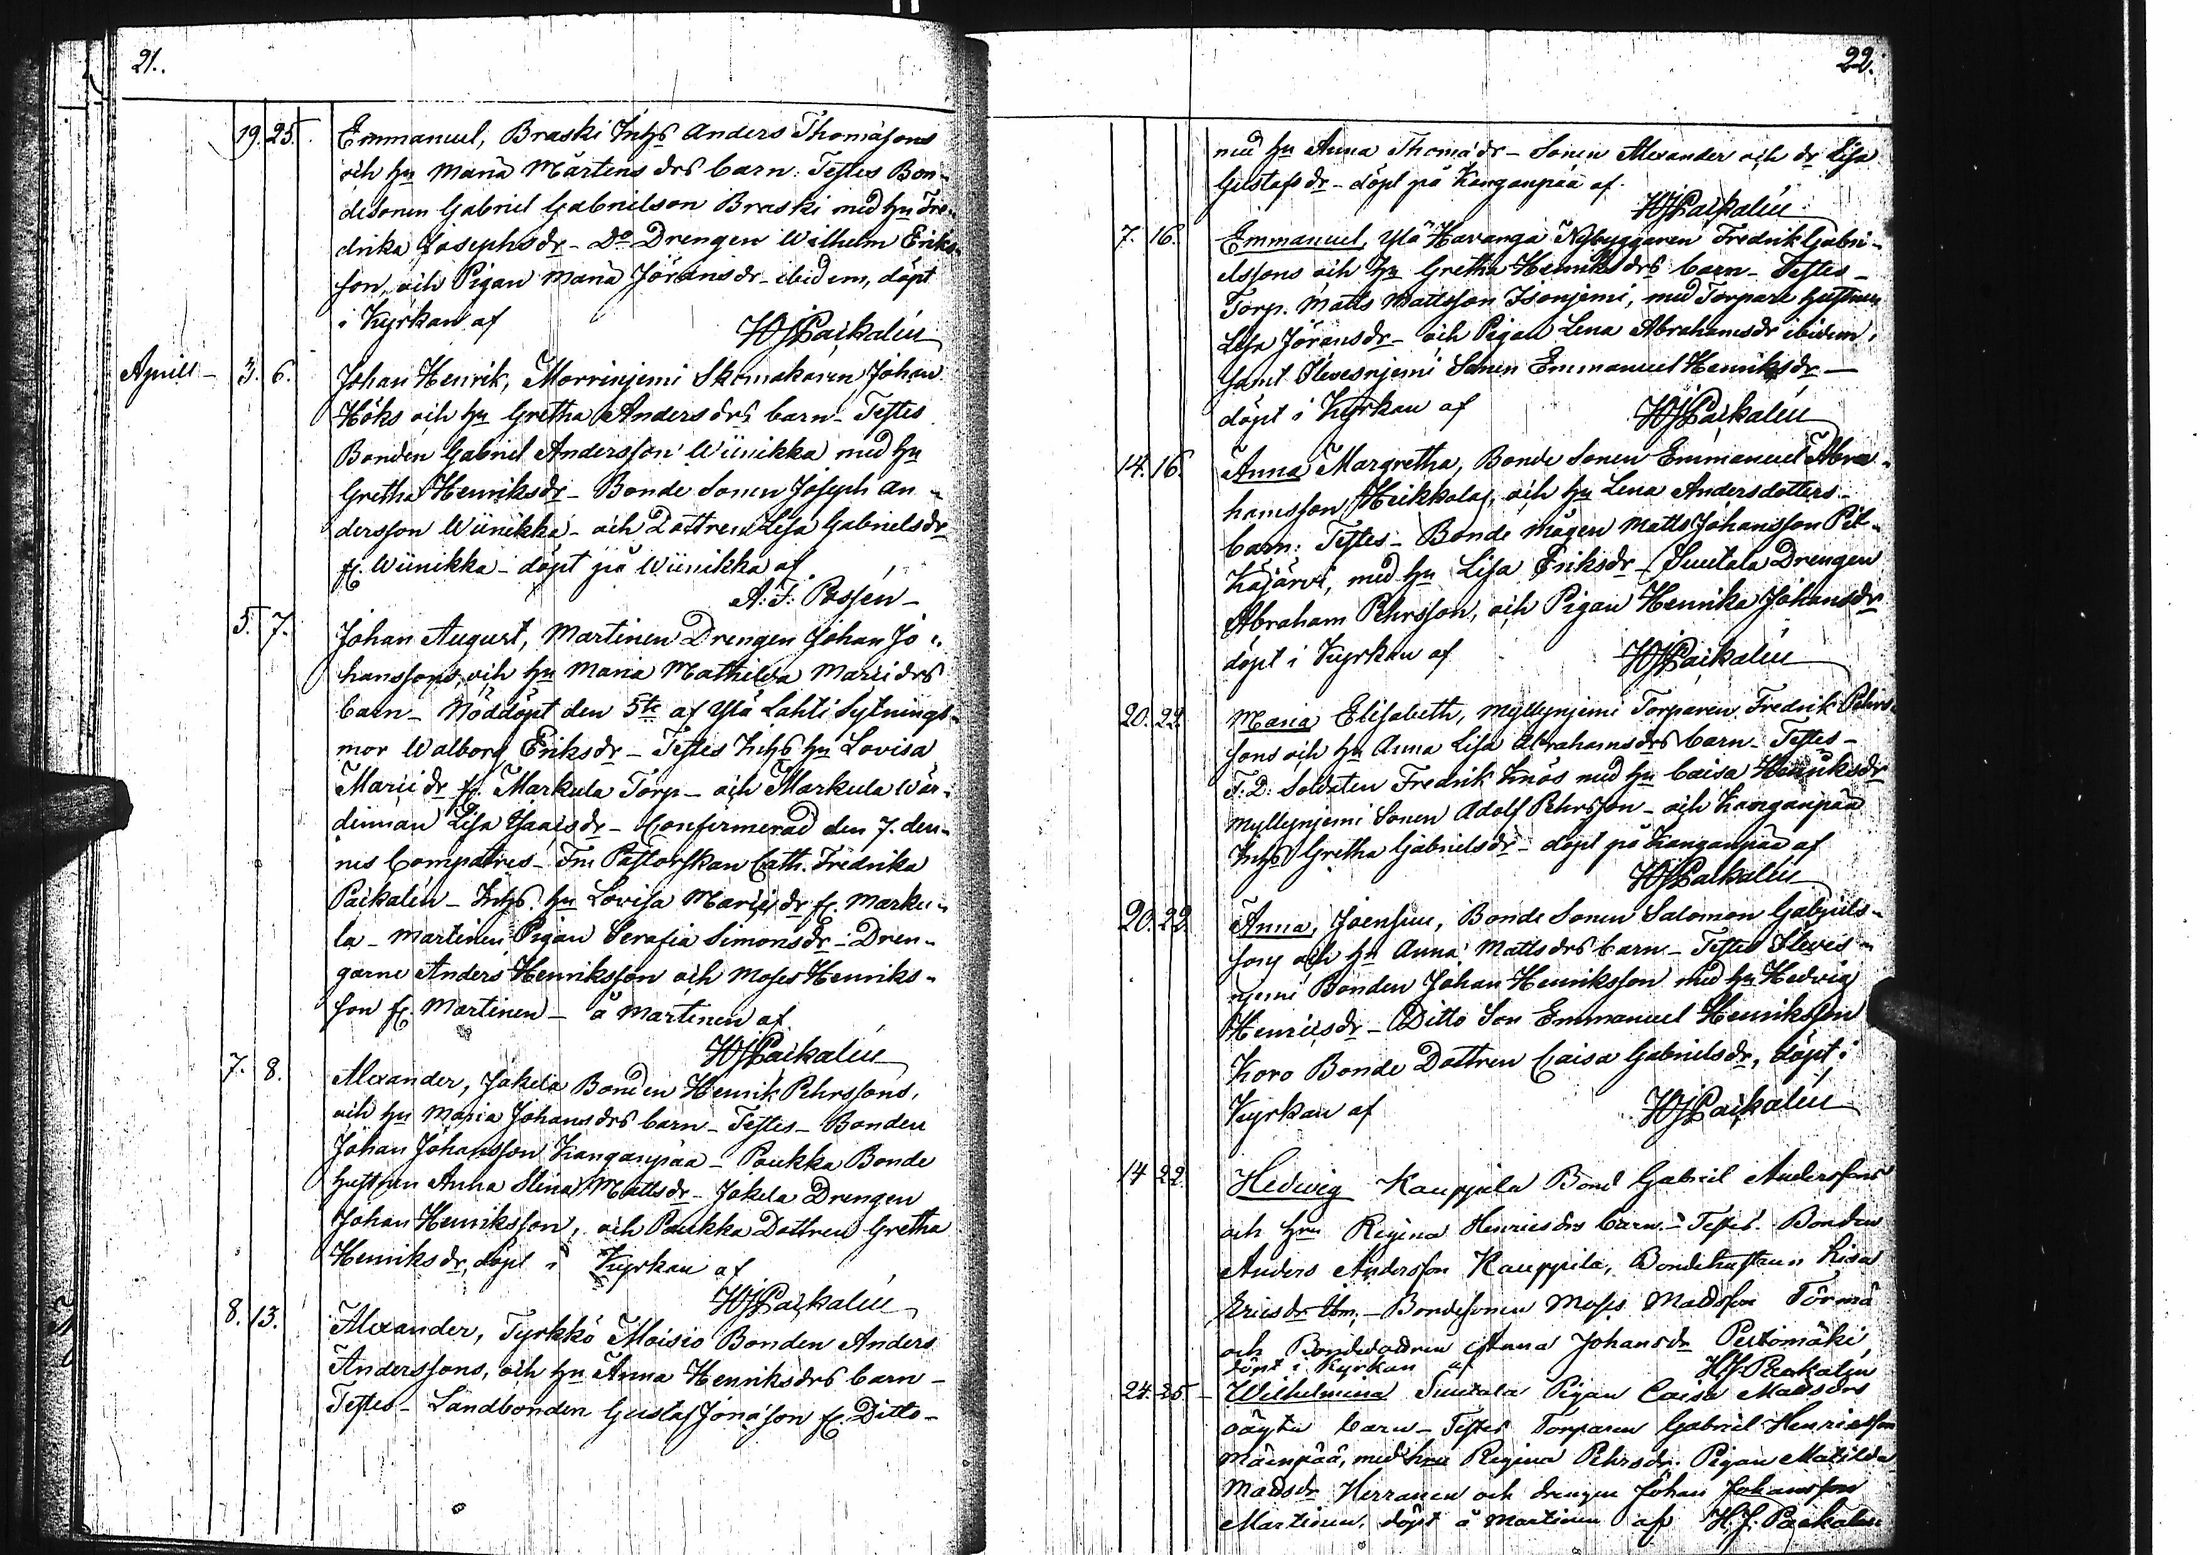 21.
19. 25. Emmanuel, Braski Inhs Anders Thomasons
och hu Maria Mårtens drs barn. Testes Bon-
desonen Gabriel Gabrielson Braski med hu Fre-
drika Josephsdr - Do Drengen Wilhelm Eriks-
son, och Pigan Maria Jöransdr - ibidem, döpt
i Kyrkan af
HJPaikalén
Aprill - 3. 6. Johan Henrik, Morrinjemi Skomakaren Johan
Höks och hu Gretha Anders drs barn - Testes
Bonden Gabriel Andersson Wiinikka med hu
Gretha Henriksdr - Bonde Sonen Joseph An-
dersson Wiinikka - och Dottren Lisa Gabrielsdr
fr. Wiinikka - döpt på Wiinikka af
A: F: Possén -
5. 7. Johan August, Martinen Drengen Johan Jo-
hanssons, och hu Maria Mathilda Mariidrs
barn - Nöddöpt den 5te af Ylä Lahti Sytnings-
mor Walborg Eriksdr - Testes Inhs hu Lovisa
Mariidr fr. Markula Torp - och Markula Wär-
dinnan Lisa Isaacsdr - Confirmerad den 7. den-
nes Compatres - Fru Pastorskan Cath. Fredrika
Paikalén - Inhs. hu Lovisa Mariidr fr. Marku-
la - Martinen Pigan Serafia Simonsdr - Dren-
garne Anders Henriksson och Moses Henriks-
son fr. Martinen - å Martinen af
HJPaikalén
7. 8. Alexander, Jakela Bonden Henrik Pehrssons,
och hu Maria Johansdrs barn - Testes - Bonden
Johan Johansson Kanganpää - Paukka Bonde
hustrun Anna Stina Mattsdr - Jakela Drengen
Johan Henriksson, och Paukka Dottren Gretha
Henriksdr, döpt i Kyrkan af
HJPaikalén
8. 13. Alexander, Tyrkkö Moisio Bonden Anders
Anderssons, och hu Anna Henriksdrs barn -
Testes - Landbonden Gustaf Jonason fr. Ditto -
22.
med hu Anna Thomadr - Sonen Alexander och dr Lisa
Gustafsdr - döpt på Kanganpää af
HJPaikalén
7. 16. Emmanuel, Ylä Havanga Nybyggaren Fredrik Gabri-
elssons och hu Gretha Henriksdrs barn - Testes -
Torp. Matts Mattsson Isonjemi, med Torpare hustrun
Lisa Jöransdr - och Pigan Lena Abrahamsdr ibidem,
samt Ilvesnjemi Sonen Emmanuel Henriksdr -
döpt i Kyrkan af
HJPaikalén
14. 16. Anna Margretha, Bonde Sonen Emmanuel Abra-
hamsson Heikkala, och hu Lena Andersdotters
barn: Testes - Bonde Mågen Matts Johansson Pit-
käjärvi, med hu Lisa Eriksdr - Suutala Drengen
Abraham Pehrsson, och Pigan Henrika Johansdr
döpt i Kyrkan af
HJPaikalén
20. 22. Maria Elisabeth, Myllynjemi Torparen Fredrik Pehrs-
sons och hu Anna Lisa Abrahamsdrs barn - Testes -
F. D. Soldaten Fredrik Knös med hu Caisa Henriksdr
Myllynjemi Sonen Adolf Pehrsson - och Kanganpää
Inhs Gretha Gabrielsdr - döpt på Kanganpää af
HJPaikalén
20. 22. Anna, Joensuu, Bonde Sonen Salomon Gabriels-
sons och hu Anna Mattsdrs barn - Testes Ilves-
njemi Bonden Johan Henriksson med hu Hedvig
Henricsdr - Ditto Son Emmanuel Henriksson
Koro Bonde Dottren Caisa Gabrielsdr, döpt i
Kyrkan af
HJPaikalén
14 22. Hedwig Kauppila Bond Gabriel Anderssons
och hru Regina Henricsdrs barn - Testes. Bonden
Anders Andersson Kauppila, Bondehustrun Lisa
Ericsdr Ibm, - Bondesonen Moses Madsson Törmä
och Bondedottren Anna Johansdr Peitomäki,
döpt i Kyrkan af H.J. Paikalén
24. 25 - Wilhelmina Suutala Pigan Caisa Madsdrs
oägta barn - Testes Torparen Gabriel Henricsson
Mäenpää, med hru Regina Pehrsdr. Pigan Matilda
Madsdr Herranen och drengen Johan Johansson
Martinen, döpt å Martinen af H.J. Paikalén